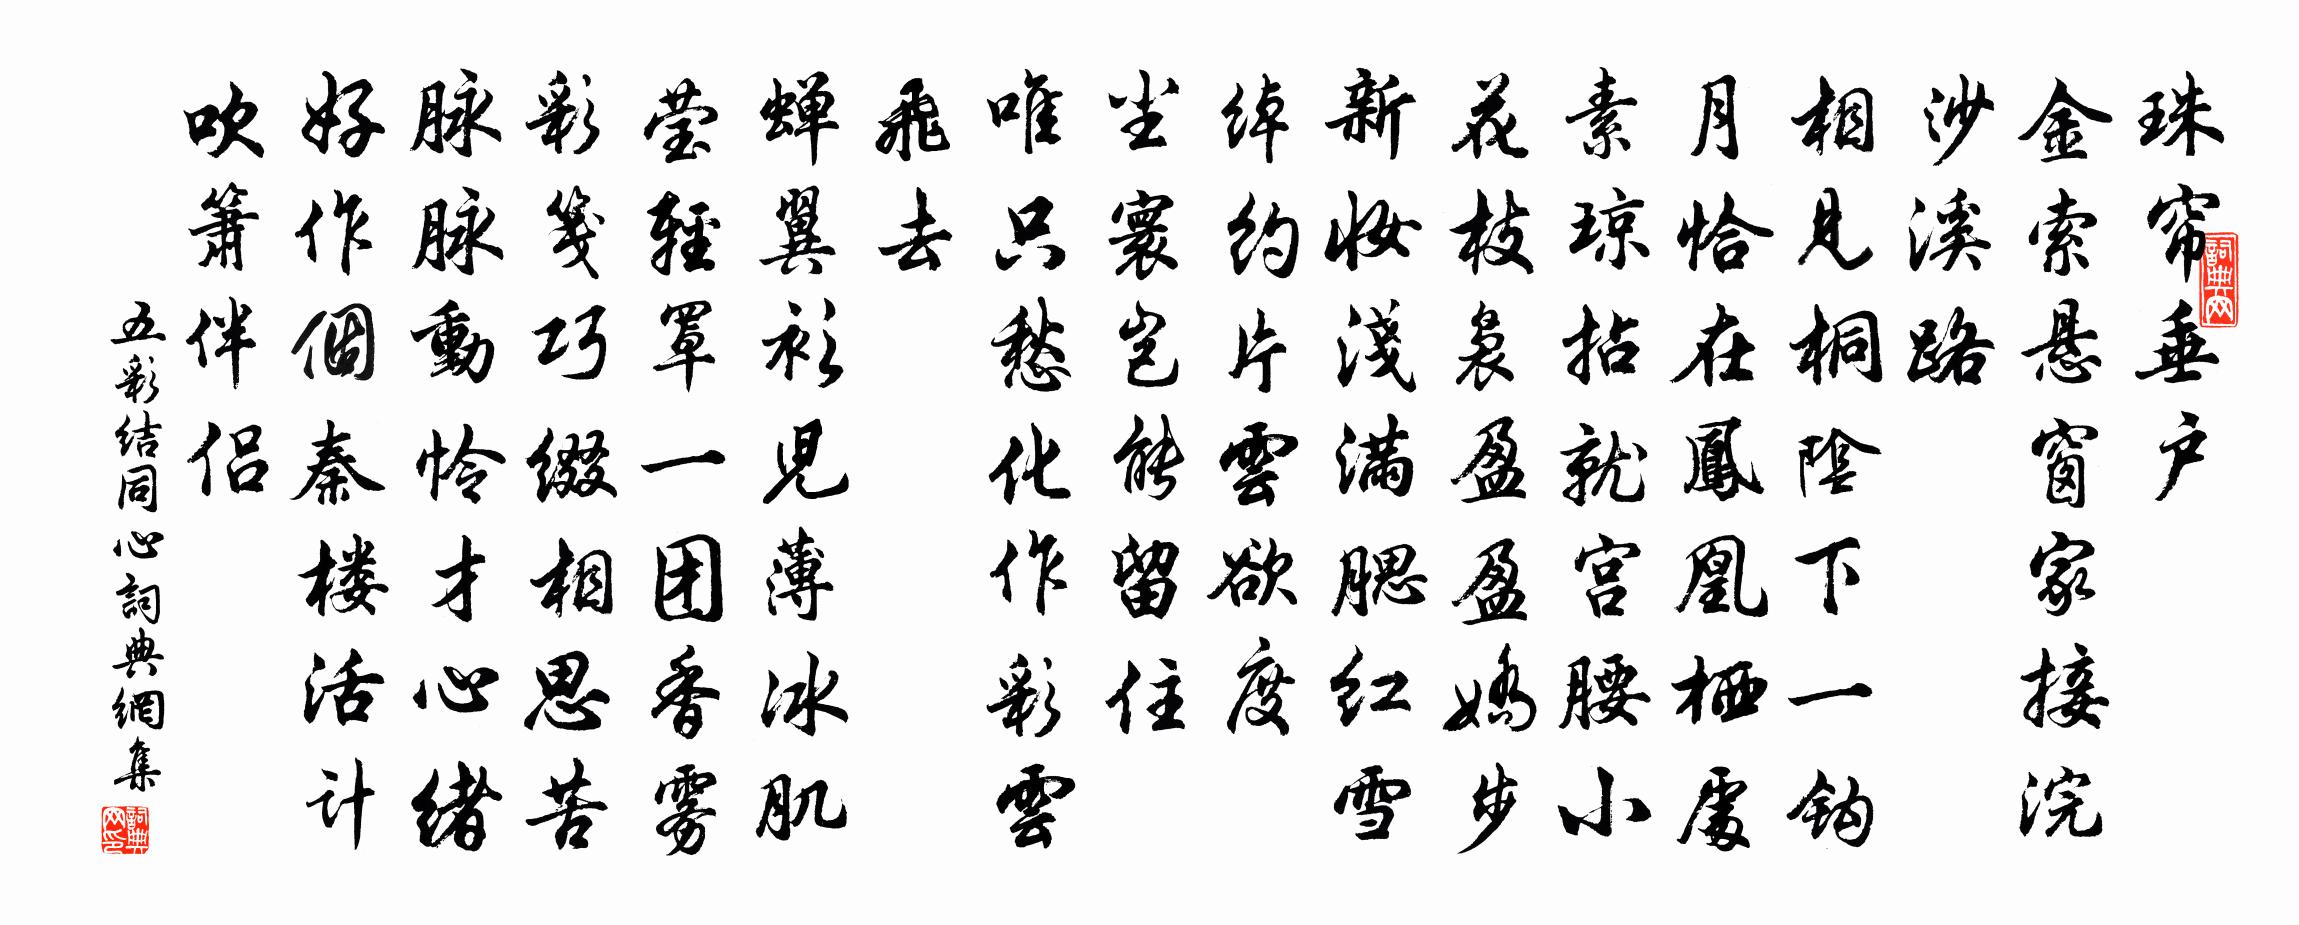 珠帘垂户
金索悬窗家接浣
沙溪路
相見桐陰下一钩
月恰在鳳凰栖處
素琼拈就宫腰小
花枝袅盈盈嬌步
新妆淺满腮红雪
绰约片雲欲度
尘寰岂能留住
唯只愁化作彩雲
飛去
蝉翼衫児薄冰肌
莹輕罩一团香雾
彩笺巧缀相思苦
脉脉動怜才心緒
好作個秦楼活计
吹箫伴侣
五彩结同心詞典網集
詞典网
詞典网印